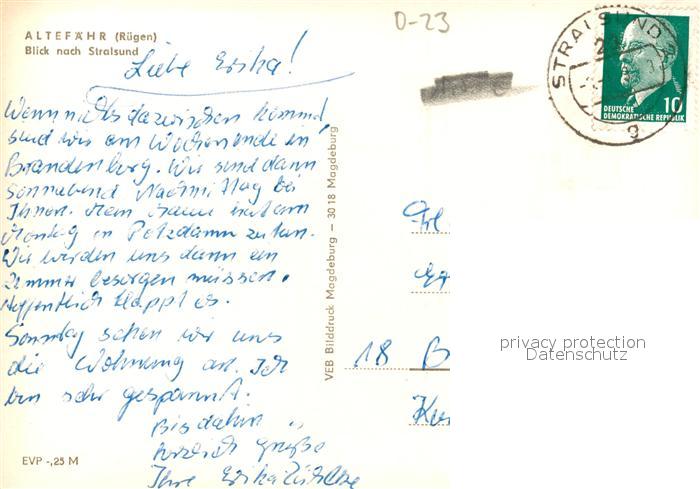 ALTEFÄHR (Rügen)
Blick nach Stralsund
Liebe Erika!
Wenn nichts dazwischen kommt,
sind wir am Wochenende in
Brandenburg. Wir sind dann
Sonnabend Nachmittag bei
Ihnen. Mein hat am
Montag in Potzdamm zu tun.
Wir werden uns dann ein
Zimmer besorgen müssen.
Hoffentlich klappt es.
Sonntag sehen wir uns
die Wohnung an. Ich
bin sehr gespannt.
Bis dahin
herzlich grüße
Ihre Erika
EVP -,25 M
VEB Bilddruck Magdeburg — 3018 Magdeburg
D-23
STRALSUND
g
10
DEUTSCHE
DEMOKRATISCHE REPUBLIK
18 B
privacy protection
Datenschutz